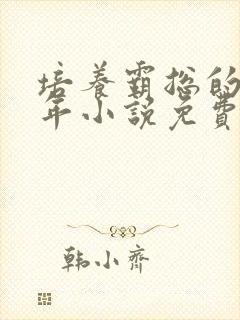 培养霸总的
年小说免费
韩小齐